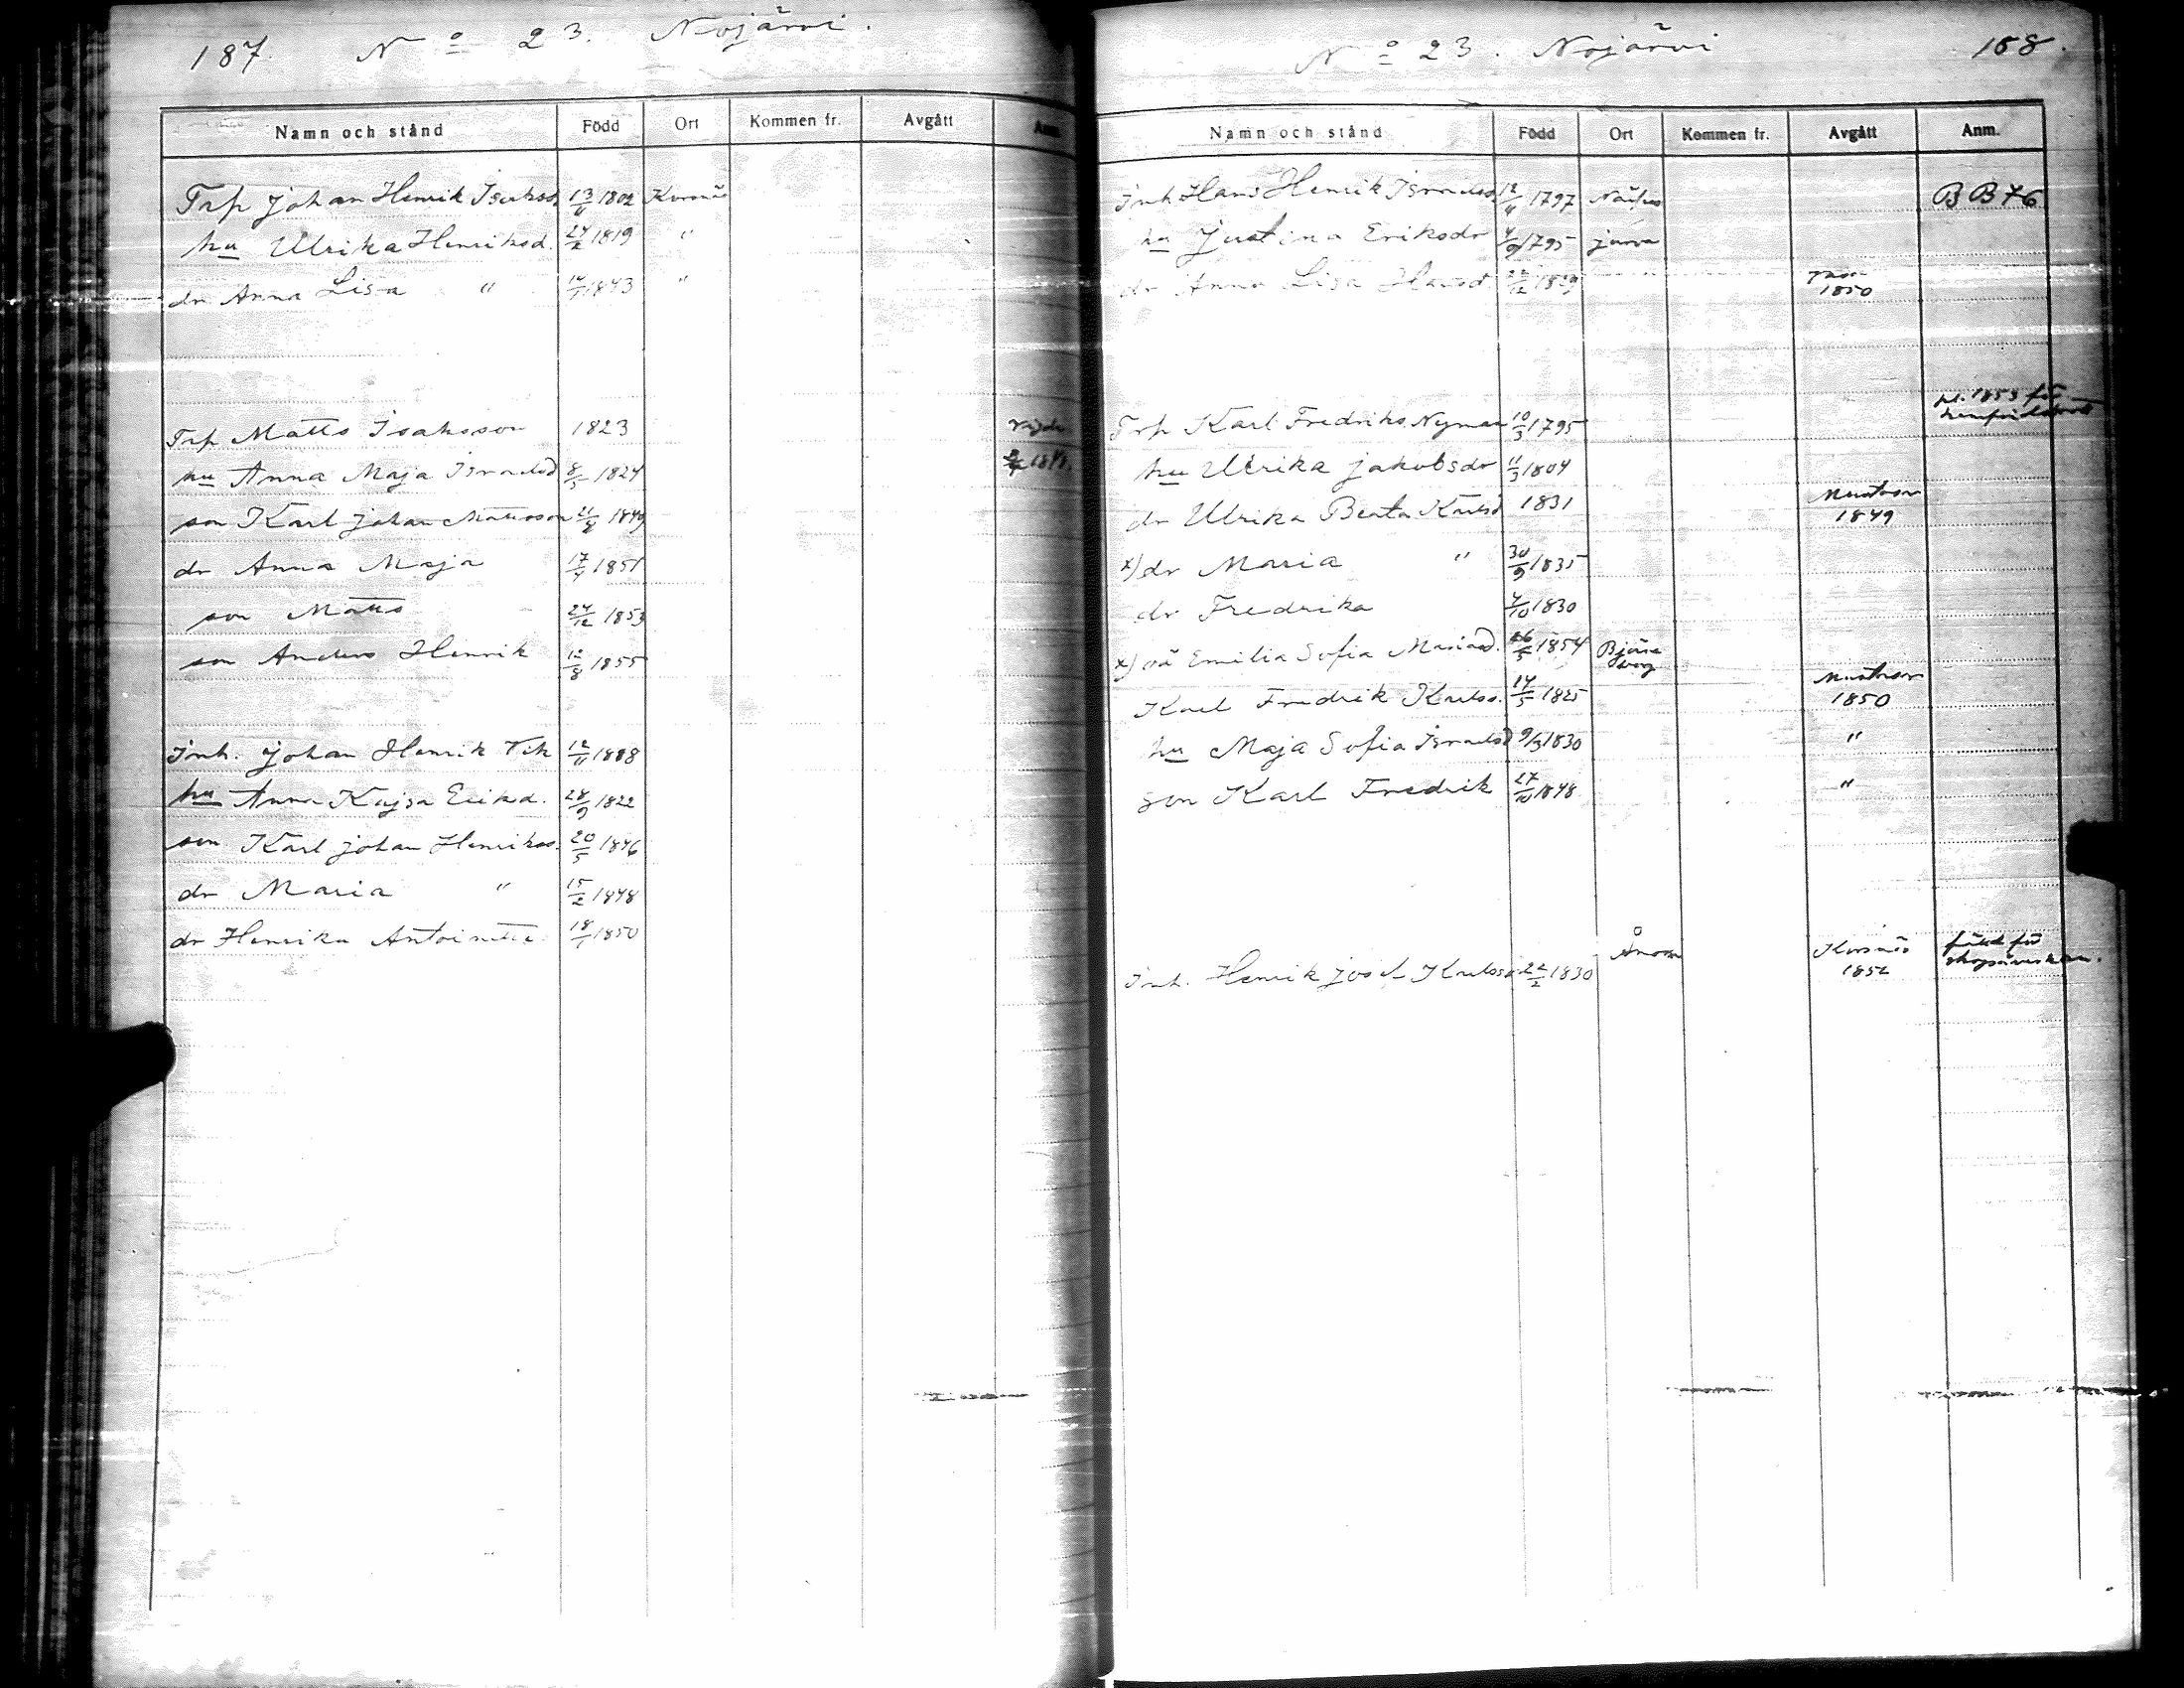 187. No 23. Nojärvi.
Namn och stånd Född Ort Kommen fr. Avgått Anm.
Trp Johan Henrik Isakss. 13/11 1802 Korsnäs
hu Ulrika Henriksd. 24/2 1819 "
dr Anna Lisa " 1843 "
Trp Matts Isaksson 1823
hu Anna Maja Israelsd 8/5 1824
son Karl Johan Mattsson 1849
dr Anna Maja 17/4 1851
son Matts 24/12 1853
son Anders Henrik 12/8 1855
Inh. Johan Henrik 12/11
hu Anna Kajsa Eriksd. 28/9 1822
son Karl Johan Henrikss. 20/5 1846
dr Maria " 15/2 1848
dr Henrika Antoinette 18/1 1850
No 23. Nojärvi 188.
Namn och stånd Född Ort Kommen fr. Avgått Anm.
Inh Hans Henrik Israelss 12/11 1797 B B 76
hu Justina Eriksdr 4/9 1795 jurva
dr Anna Lisa Hansd. 1829 1850
Trp Karl Fredriks. Nyman 10/3 1795 1853 för
hu Ulrika Jakobsdr 11/3 1804
dr Ulrika Beata Karlsd 1831 Mustasar
1849
x) dr Maria " 30/9 1835
dr Fredrika 4/10 1830
x) oä Emilia Sofia Mariasd. 1854 Björne
borg
Karl Fredrik Karlss. 14/5 1825 Mustasar
1850
hu Maja Sofia Israelsd 9/3 1830 "
son Karl Fredrik 27/10 1848 "
Inh. Henrik Josef Karlsson 22/2 1830 Korsnäs
1852